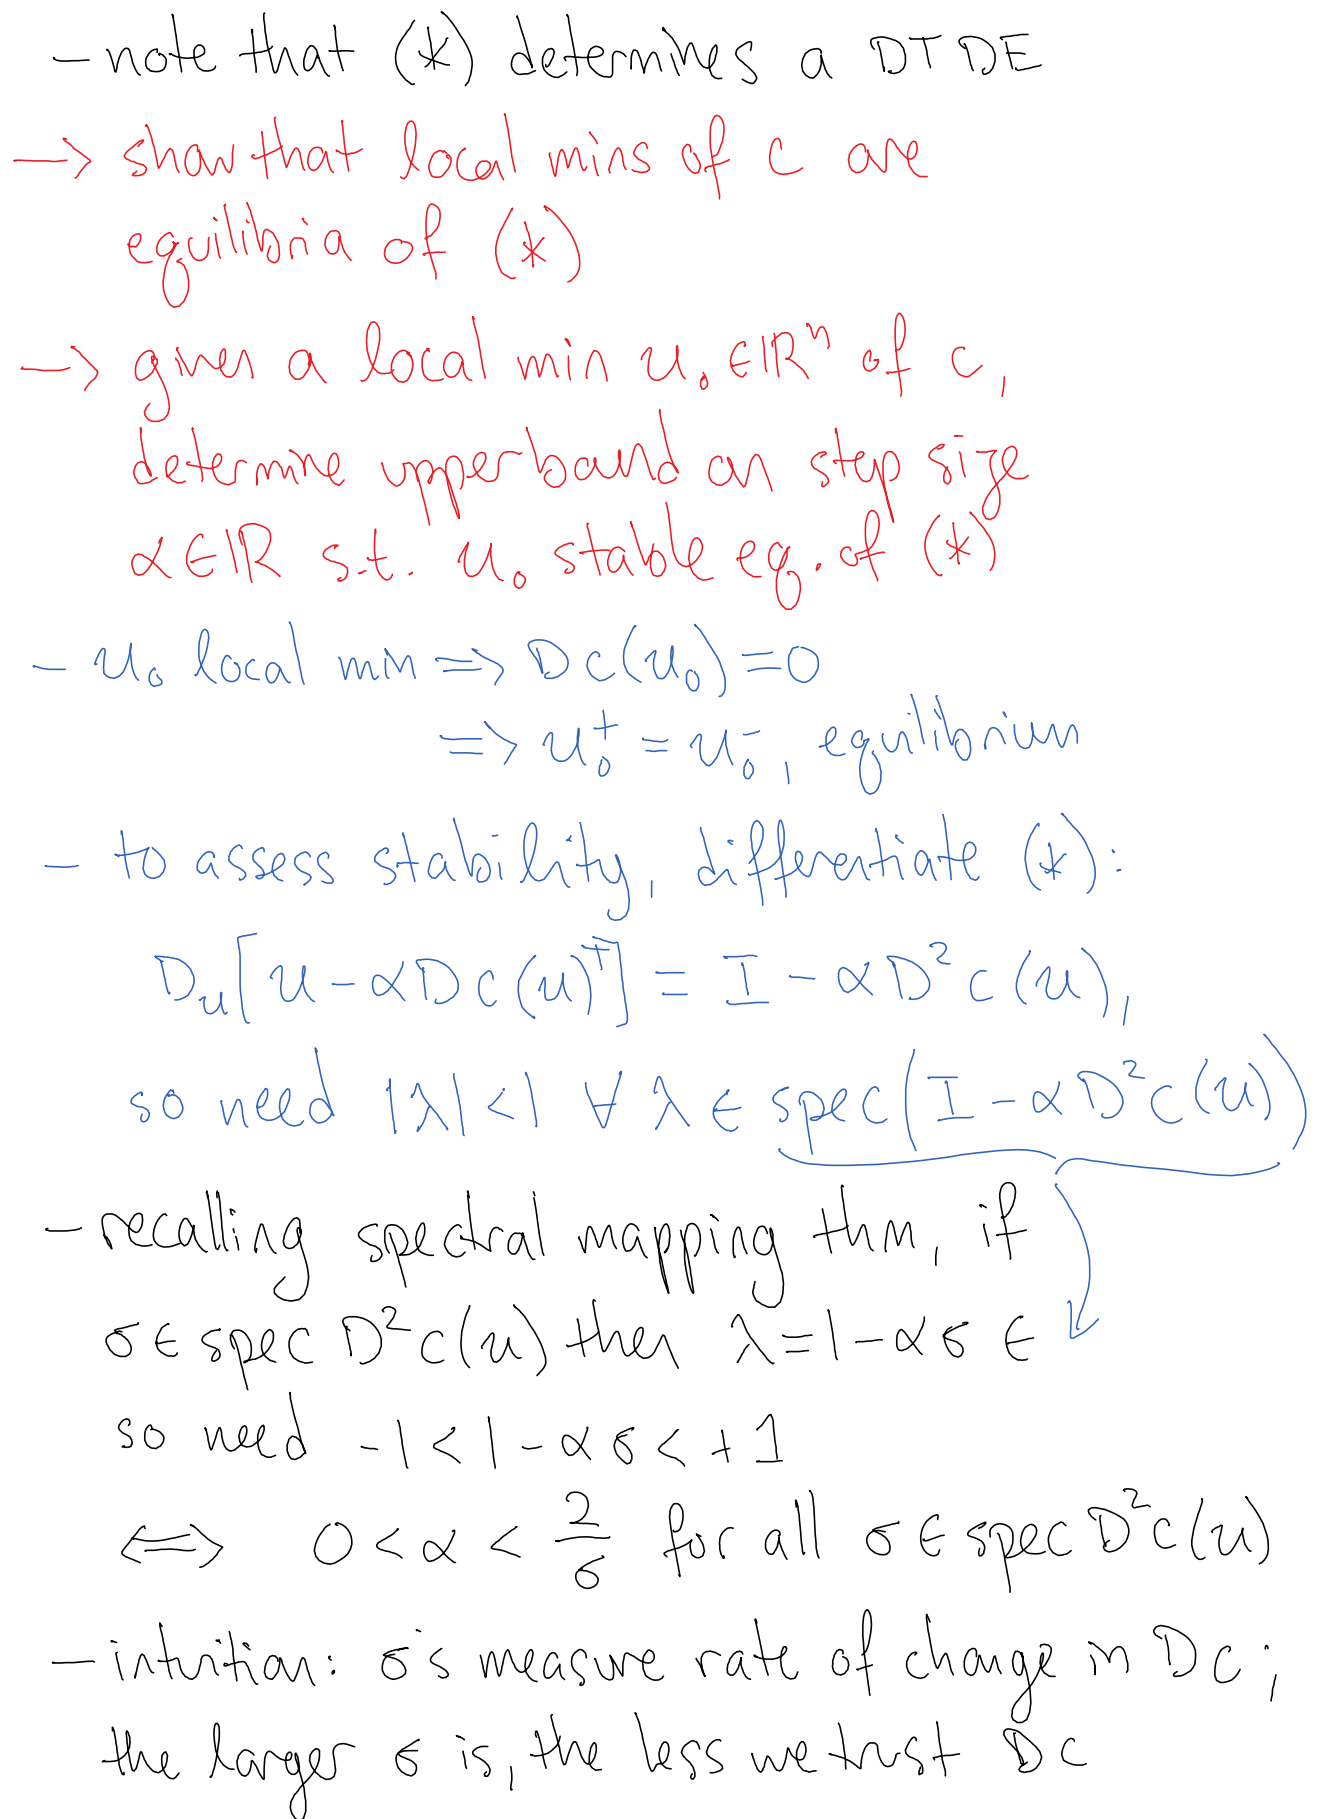 - note that (*) determines a DTDE
→ show that local mins of c are
equilibria of (*)
→ given a local min u₀ ∈ ℝⁿ of c,
determine upper bound on step size
α ∈ ℝ s.t. u₀ stable eq. of (*)
- u₀ local min ⇒ Dc(u₀) = 0
⇒ u₀⁺ = u₀⁻, equilibrium
- to assess stability, differentiate (*):
Dᵤ[u - αDc(u)ᵀ] = I - αD²c(u),
so need |λ| < 1 ∀ λ ∈ spec(I - αD²c(u))
- recalling spectral mapping thm, if
σ ∈ spec D²c(u) then λ = 1 - ασ ∈
so need -1 < 1 - ασ < +1
⇔ 0 < α < 2/σ for all σ ∈ spec D²c(u)
- intuition: σ's measure rate of change in Dc;
the larger σ is, the less we trust Dc